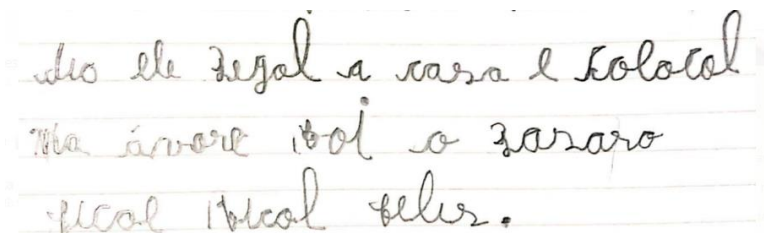 deo ele zegol a casa e colocol
na ávore i o zazaro
ficol ficol felis.